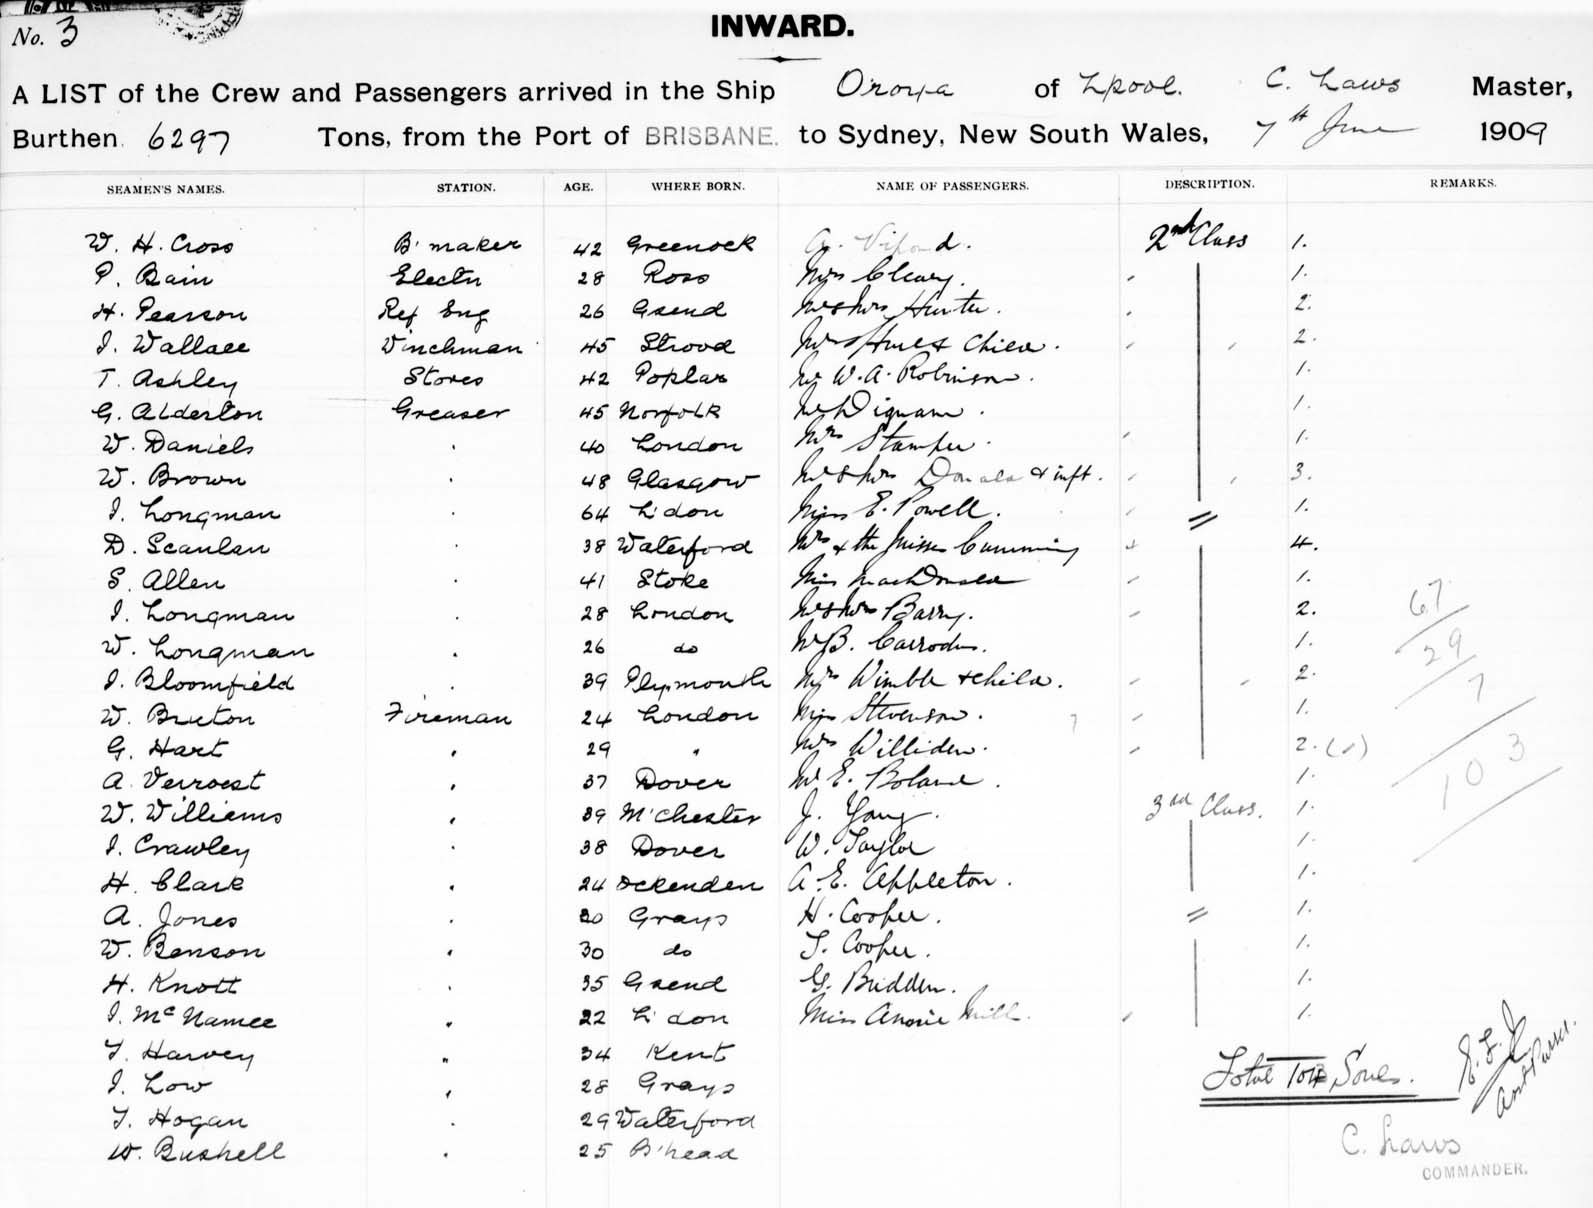 No. 3
INWARD.
A LIST of the Crew and Passengers arrived in the Ship Oroya of Lpool. C. Laws Master,
Burthen 6297 Tons, from the Port of BRISBANE. to Sydney, New South Wales, 7th June 1909
SEAMEN'S NAMES. STATION. AGE. WHERE BORN. NAME OF PASSENGERS. DESCRIPTION. REMARKS.
W. H. Cross B'maker 42 Greenock Vipond. 2nd Class 1.
P. Bain Electn 28 Ross Mrs Cleary. 1.
H. Pearson Ref Eng 26 Gsend Mr & Mrs Hunter. 2.
J. Wallace Winchman 45 Strood Mrs Hule & Child. 2.
T. Ashley Stores 42 Poplar Mr W. A. Robinson. 1.
G. Alderton Greaser 45 Norfolk Mr Dignam. 1.
W. Daniels " 40 London Mrs Stamper. 1.
W. Brown " 48 Glasgow Mr & Mrs Donald & inft. 3.
J. Longman " 64 L'don Miss E. Powell. " 1.
D. Scanlan " 38 Waterford Mrs & the Misses Cumming 4.
S. Allen " 41 Stoke Miss MacDonald 1.
J. Longman " 28 London Mr & Mrs Barry. 2.
W. Longman " 26 do Mr B. Carrodus. 1.
J. Bloomfield " 39 Plymouth Mrs Wimble & child. 2.
W. Bruton Fireman 24 London Miss Stevenson. 1.
G. Hart " 29 " Mrs Williden. 2. (1)
A. Verroest " 37 Dover Mr E. Boland. 1.
W. Williams " 39 M'chester J. Young. 3rd Class. 1.
J. Crawley " 38 Dover W. Taylor 1.
H. Clark " 24 Ockenden A. E. Appleton. 1.
A. Jones " 30 Grays H. Cooper. " 1.
W. Benson " 30 do T. Cooper. 1.
H. Knott " 35 Gsend G. Budden. 1.
J. McNamee " 22 L'don Miss Annie Mill. 1.
T. Harvey " 34 Kent
J. Low " 28 Grays
T. Hogan " 29 Waterford
W. Bushell " 25 B'head
67
29
7
103
Total Souls.
Asst Purser.
C. Laws
COMMANDER.